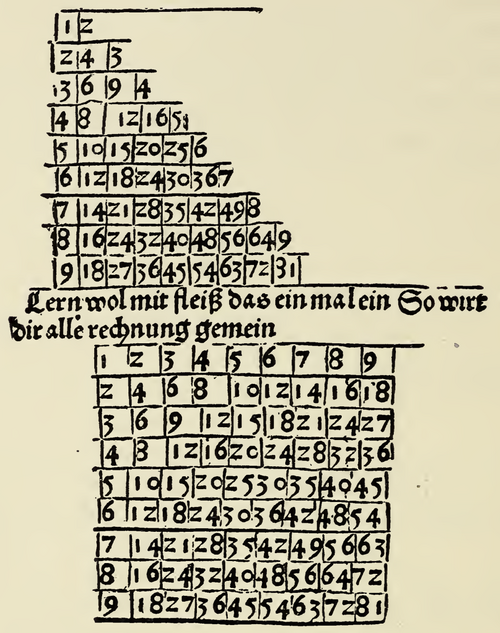 1 2
2 4 3
3 6 9 4
4 8 12 16 5
5 10 15 20 25 6
6 12 18 24 30 36 7
7 14 21 28 35 42 49 8
8 16 24 32 40 48 56 64 9
9 18 27 36 45 54 63 72 81
Lern wol mit fleiß das ein mal ein So wirt
dir alle rechnung gemein
1 2 3 4 5 6 7 8 9
2 4 6 8 10 12 14 16 18
3 6 9 12 15 18 21 24 27
4 8 12 16 20 24 28 32 36
5 10 15 20 25 30 35 40 45
6 12 18 24 30 36 42 48 54
7 14 21 28 35 42 49 56 63
8 16 24 32 40 48 56 64 72
9 18 27 36 45 54 63 72 81